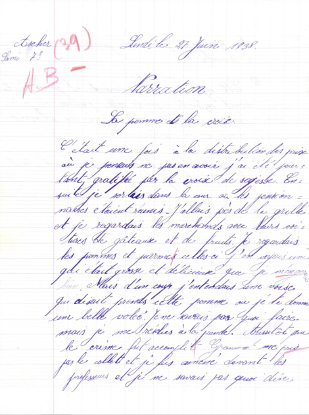 Ascher (39) Lundi le 27 Juin 1938.
A B -
Narration
La pomme et la croix
C'était une fois à la distribution des prix
où je pensais ne pas en avoir j'ai été pour-
tant gratifié par la croix de sagesse. En-
suite je sortais dans la cour où les
étaient données. J'étais près de la grille
et je regardais les marchands avec leurs
de gâteaux et de fruits je regardais
les pommes et parmi celles ci j'en
qui était grosse et délicieuse que je
Mais d'un coup j'entendais une voix
qui disait prends cette pomme ou je te donne
une belle volée. Je ne savais pas que faire
mais je me rendais à la pomme. Aussitôt que
le crime fut accompli me prit
par le collet et je fus amené devant les
professeurs et je ne savais pas quoi dire.